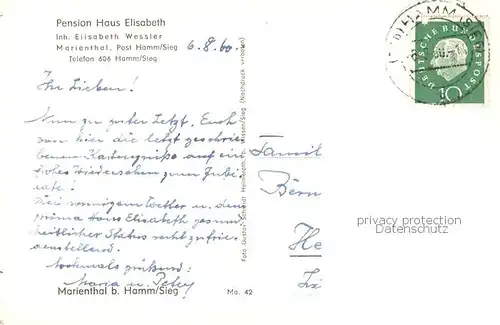 Pension Haus Elisabeth
Inh. Elisabeth Wessler
Marienthal, Post Hamm/Sieg
Telefon 606 Hamm/Sieg
6.8.60.
Ihr Lieben!
Nun zu guter Letzt. Euch
von hier die letzt geschrie-
benen Kartengrüße auf ein
frohes Wiedersehen zum
Bei sonnigem Wetter u. dem
prima Haus Elisabeth gesund-
heitlicher Status recht zufrie-
denstellend.
Nochmals grüßend:
Maria u.
Marienthal b. Hamm/Sieg
Ma. 42
(Nachdruck verboten)
Foto Gustav Schmidt
Wissen/Sieg
HAMM (SIEG)
DEUTSCHE BUNDESPOST
10
Famil
Bern
He
privacy protection
Datenschutz